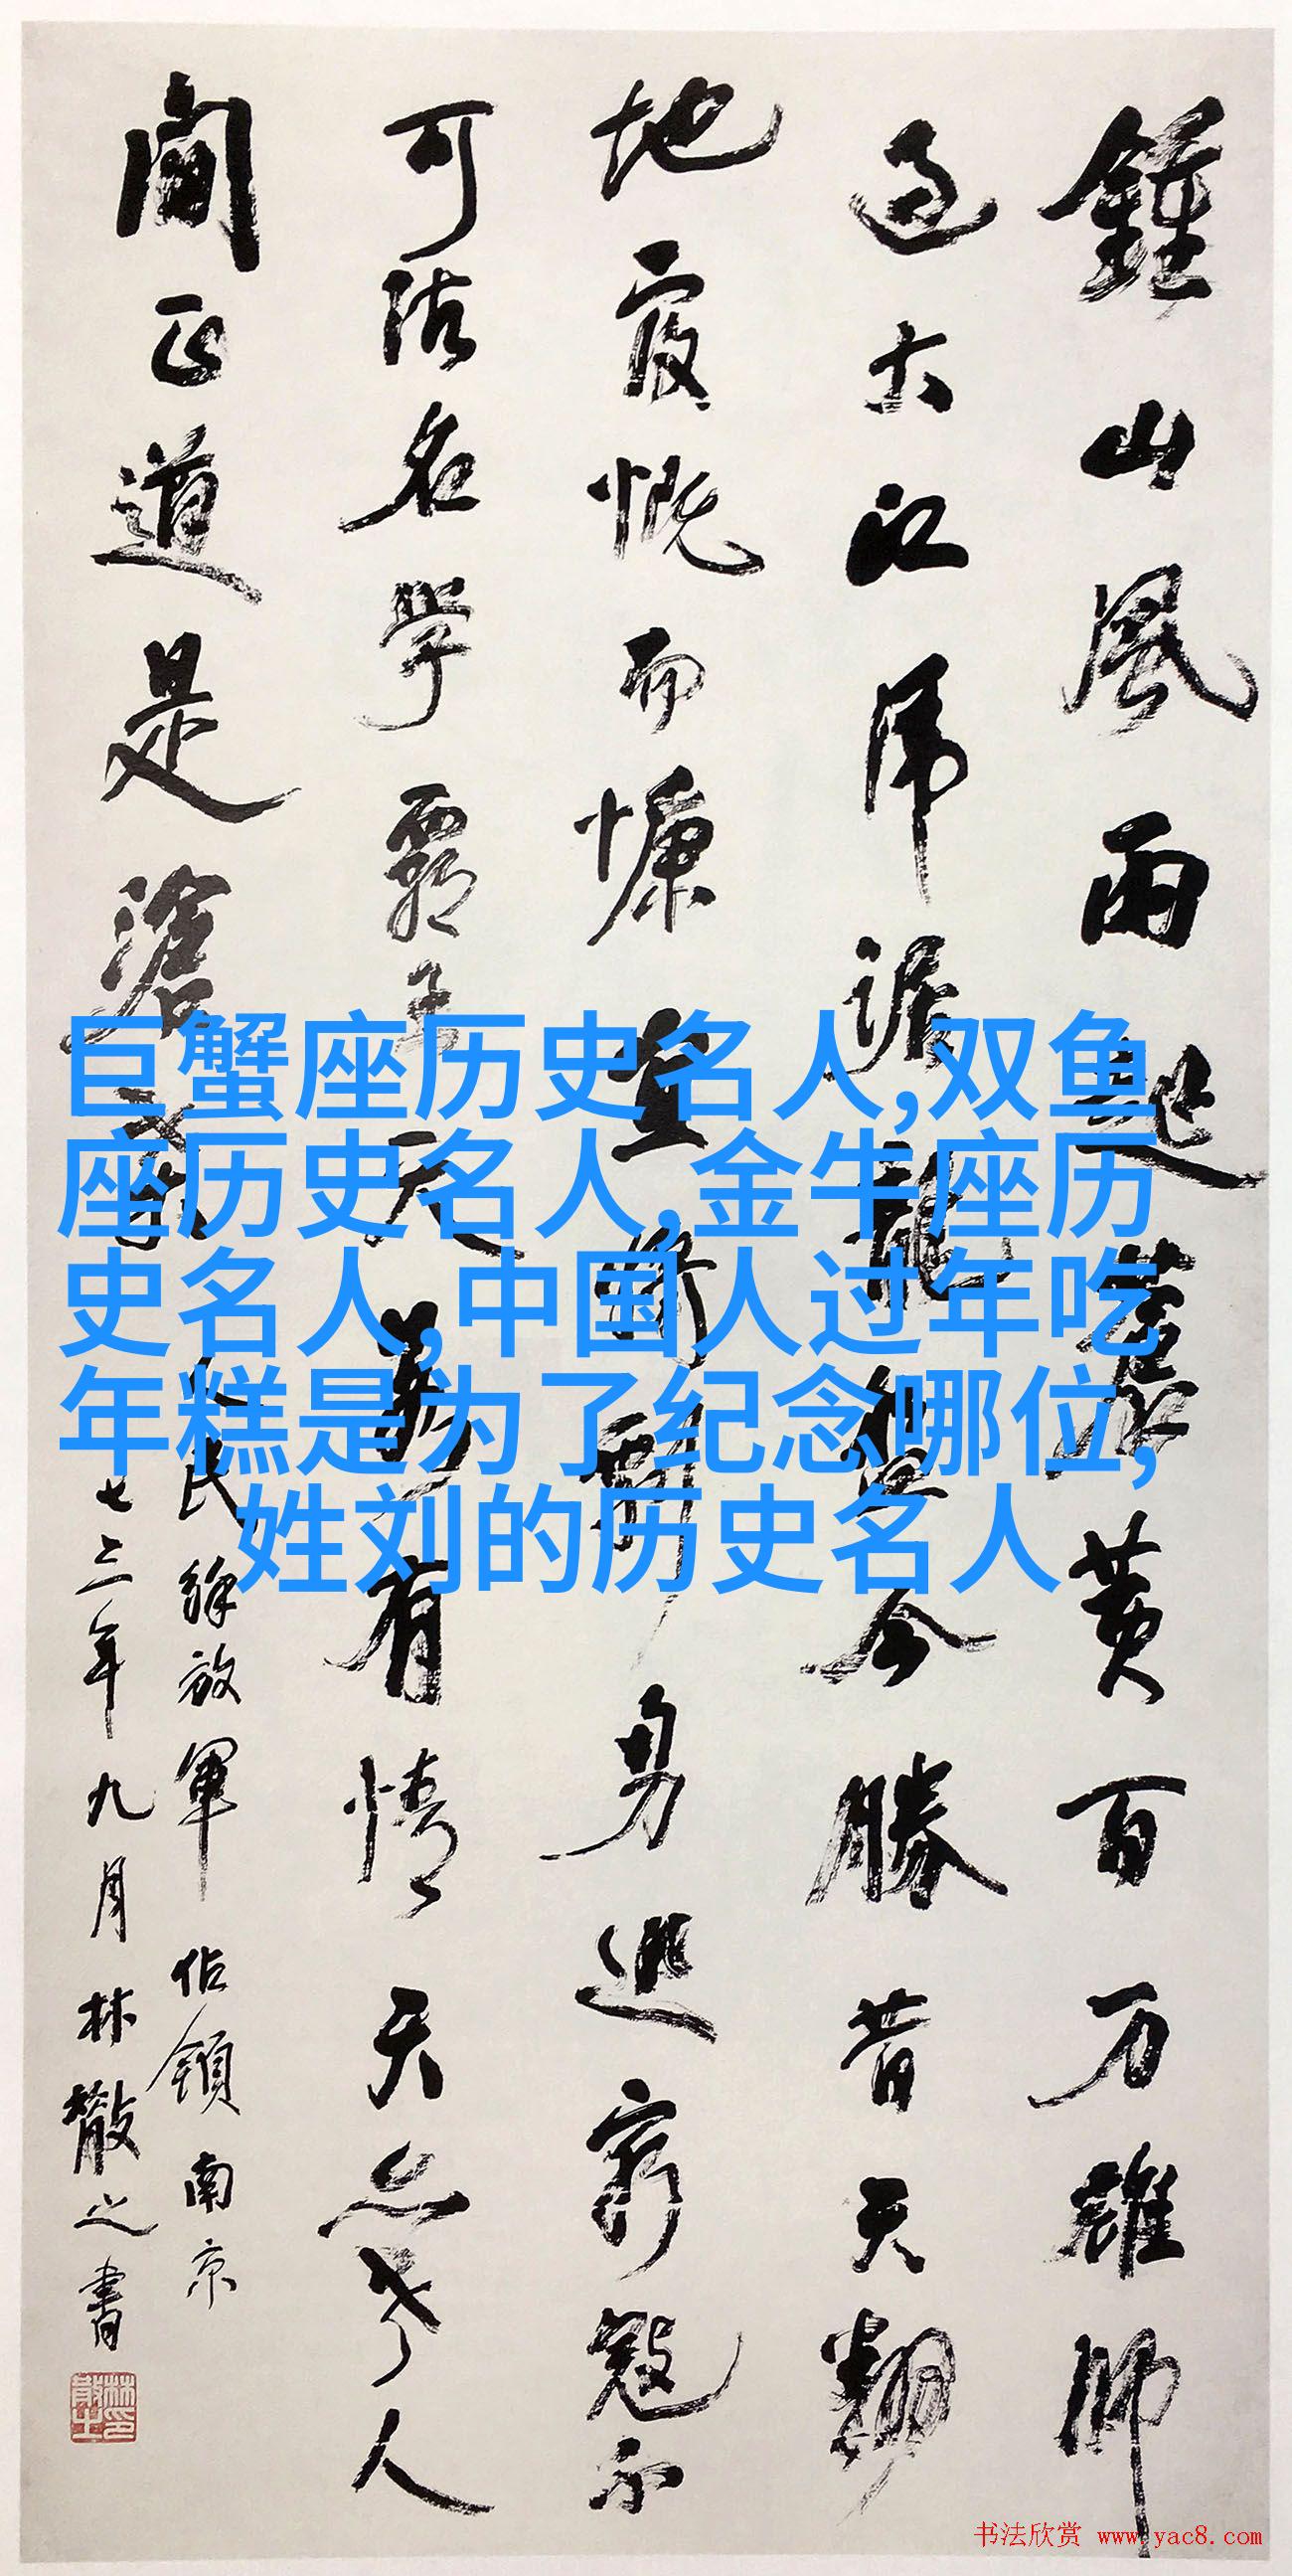 鍾山風雨起蒼黄百万雄師
過大江虎踞龍盤今勝昔天翻
地覆慨而慷宜将剩勇追窮寇不
可沽名學霸王天若有情天亦老人
間正道是滄桑
人民解放軍佔領南京
七三年九月林散之書
林散之印
巨蟹座历史名人,双鱼
座历史名人,金牛座历
史名人,中国人过年吃
年糕是为了纪念哪位,
姓刘的历史名人
书法欣赏 www.yac8.com